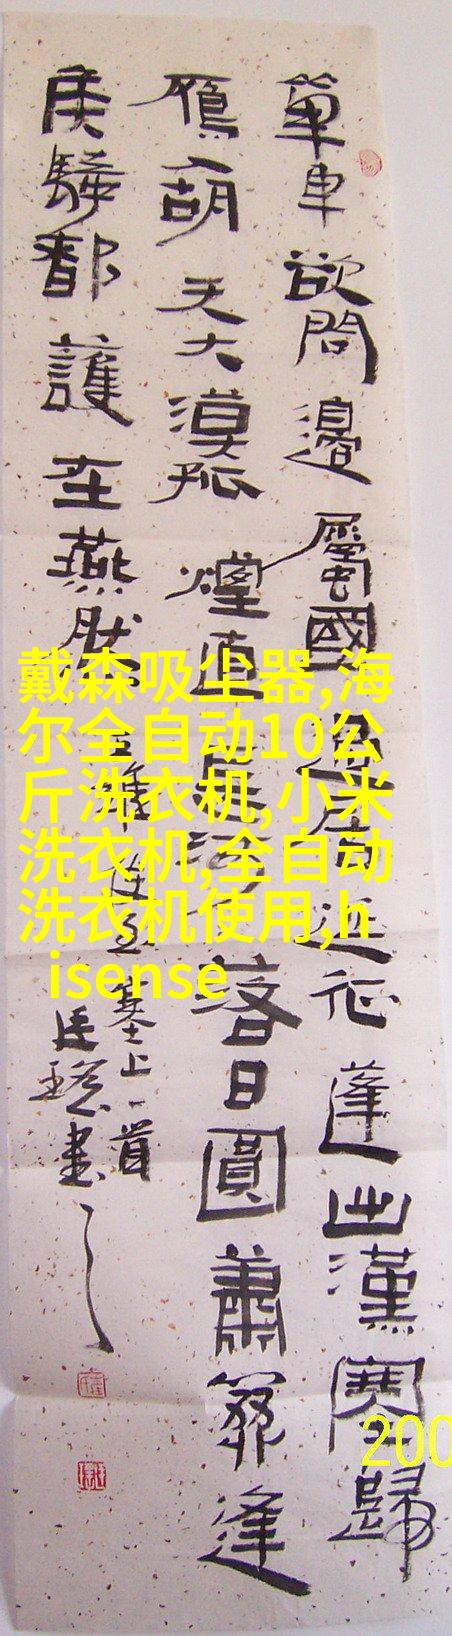 單車欲問邊屬國過居延征蓬出漢塞歸
雁入胡天大漠孤煙直長河落日圓蕭關逢
候騎都護在燕然
王維使至塞上一首
書
戴森吸尘器,海
尔全自动10公
斤洗衣机,小米
洗衣机,全自动
洗衣机使用,h
isense
200